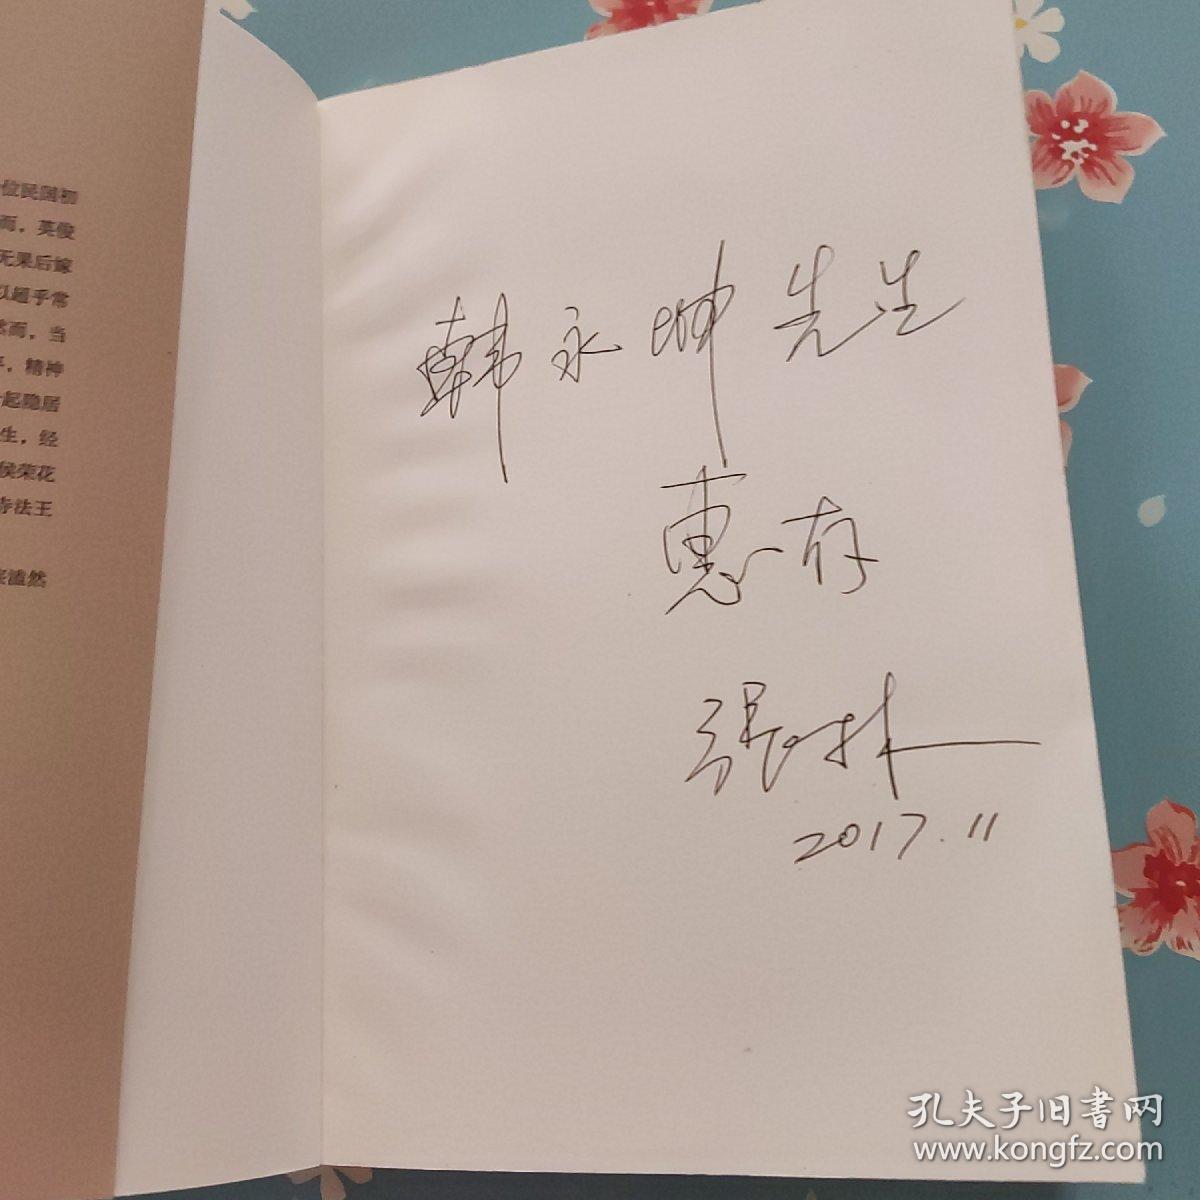 位民国初
而，英俊
无果后嫁
以超乎常
而，当
，精神
起隐居
生，经
侯荣花
寺法王
溘然
韩永坤先生
惠存
張林
2017.11
孔夫子旧書网
www.kongfz.com